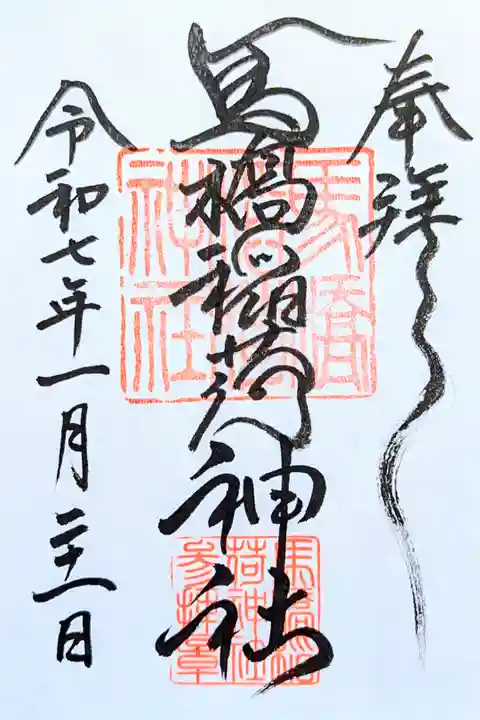 奉拝
馬橋稲荷神社
令和七年一月二十一日
馬橋
神社
馬橋稲
荷神社
参拝章